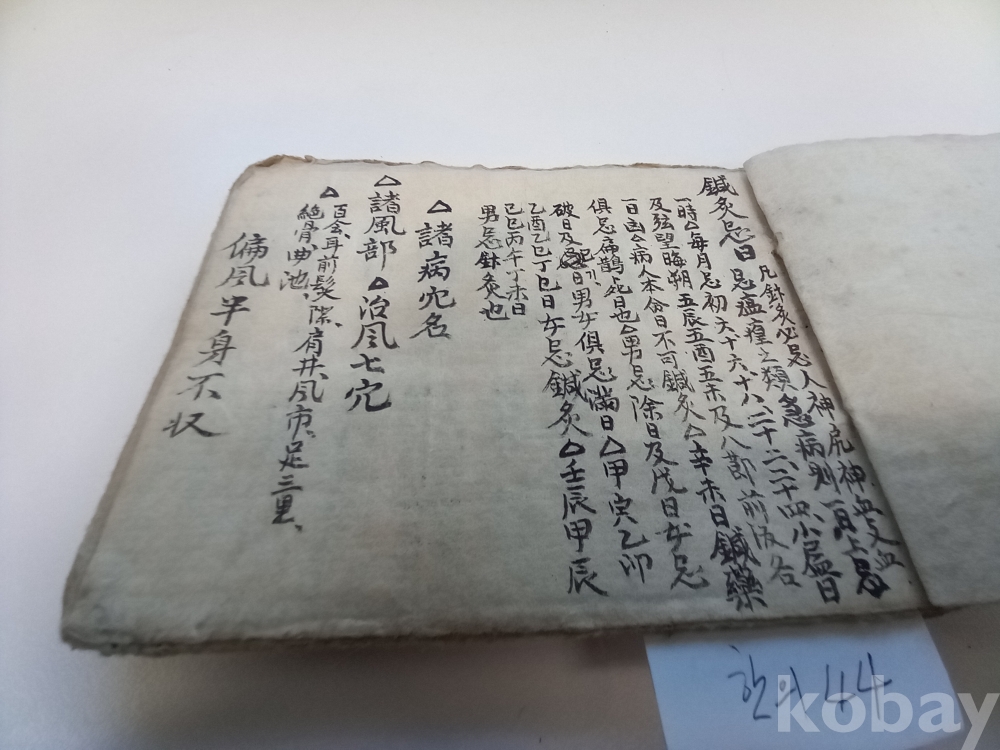 鍼灸忌日 凡鈦灸必忌人神尻神血支血
忌瘟㾮之類急病則一日上忌
一時△每月忌初六、十六、十八、二十二、二十四、小盡日
及弦望晦朔五辰五酉五未及八節前後各
一日凶△病人本命日不可鍼灸△辛未日鍼藥
俱忌扁鵲死日也△男忌除日及戊日女忌
破日及日男女俱忌滿日△甲寅乙卯
乙酉乙巳丁巳日女忌鍼灸△壬辰甲辰
己巳丙午丁未日
男忌鈦灸也
△諸病穴名
△諸風部△治風七穴
△百会、耳前髮際、肩井、風市、足三里、
絶骨、曲池、
偏風半身不収
44
kobay